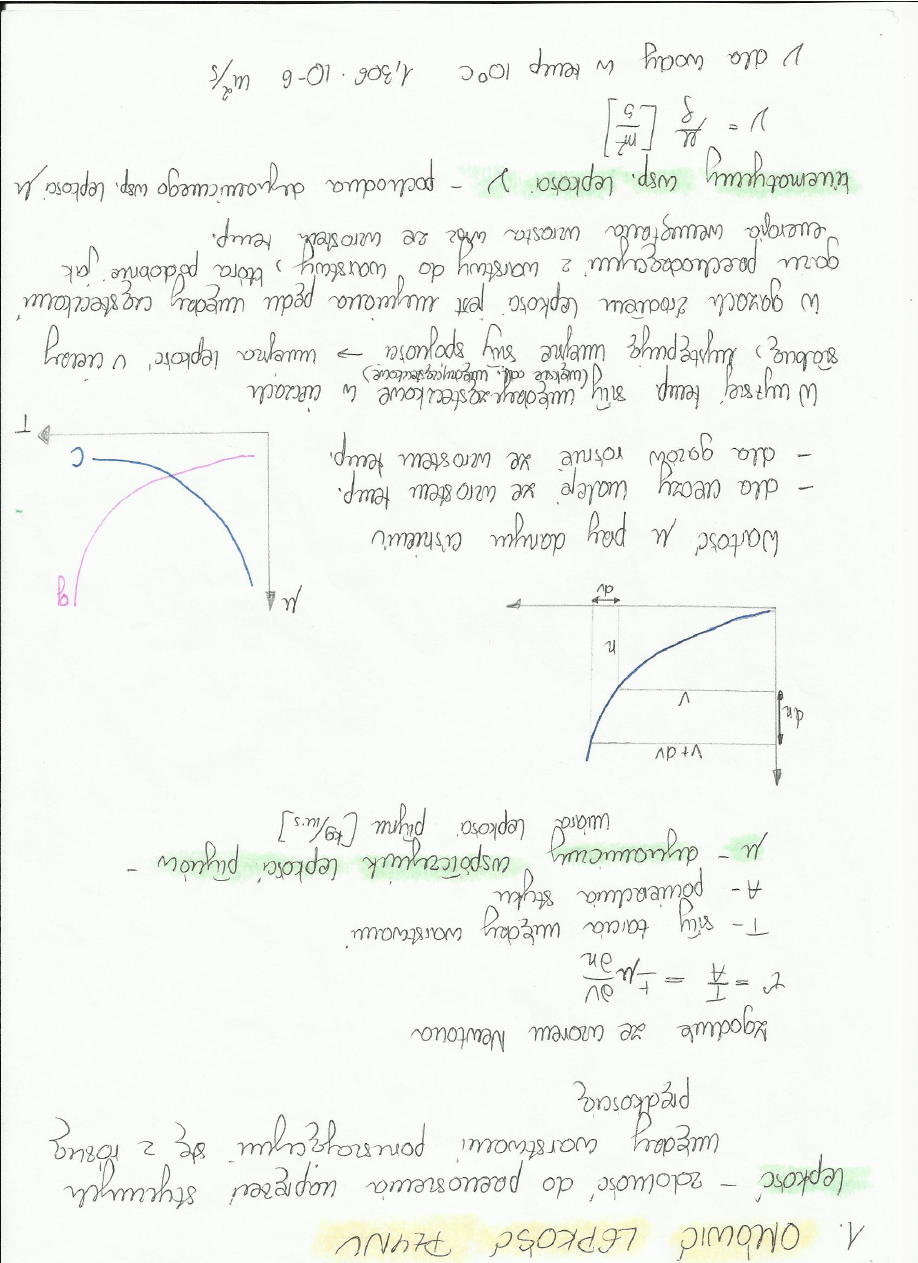 1. OMÓWIĆ LEPKOŚĆ PŁYNU
lepkość – zdolność do przenoszenia naprężeń stycznych
między warstwami poruszającymi się z różną
prędkością
zgodnie ze wzorem Newtona
τ = T/A = ± μ ∂V/∂n
T - siły tarcia między warstwami
A - powierzchnia styku
μ - dynamiczny współczynnik lepkości płynów -
miara lepkości płynu [kg/m·s]
V+dV
dn
V
n
dV
Wartość μ przy danym ciśnieniu
- dla cieczy maleje ze wzrostem temp.
- dla gazów rośnie ze wzrostem temp.
μ
g
C
T
W wyższej temp siły międzycząsteczkowe w cieczach
(większe odl. międzycząsteczkowe)
słabną, występują mniejsze siły spójności → mniejsza lepkość u cieczy
W gazach źródłem lepkości jest wymiana pędu między cząsteczkami
gazu przechodzącymi z warstwy do warstwy, która podobnie jak
energia wewnętrzna wzrasta ze wzrostem temp.
kinematyczny wsp. lepkości ν - pochodna dynamicznego wsp. lepkości μ
ν = μ/ρ [m²/s]
ν dla wody w temp 10°C 1,306 · 10-6 m²/s